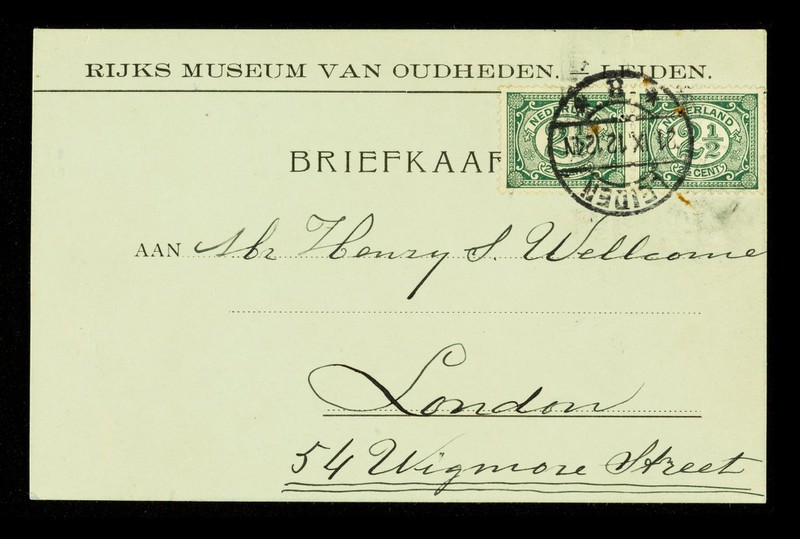 RIJKS MUSEUM VAN OUDHEDEN. — LEIDEN.
BRIEFKAAR
NEDERLAND
2½
CENT
NEDERLAND
2½
CENT
LEIDEN
AAN Mr Henry S. Wellcome
London
54 Wigmore Street